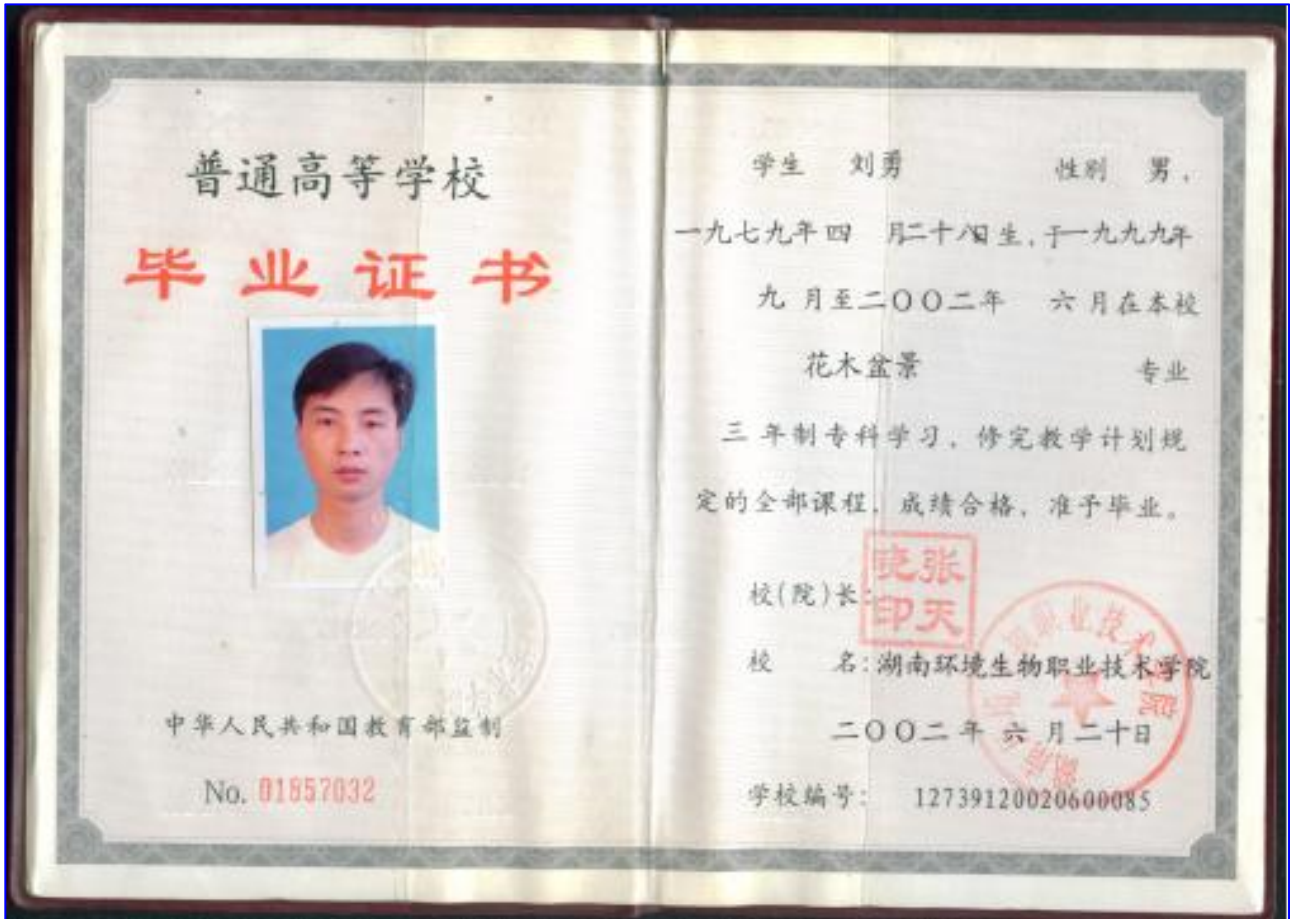 普通高等学校
毕业证书
中华人民共和国教育部监制
No. 01857032
学生 刘勇 性别 男，
一九七九年四 月二十八日生，于一九九九年
九 月至二〇〇二年 六月在本校
花木盆景 专业
三 年制专科学习，修完教学计划规
定的全部课程，成绩合格，准予毕业。
校(院)长：
张天
印
校 名：湖南环境生物职业技术学院
二〇〇二年 六 月二十日
学校编号： 12739120020600085